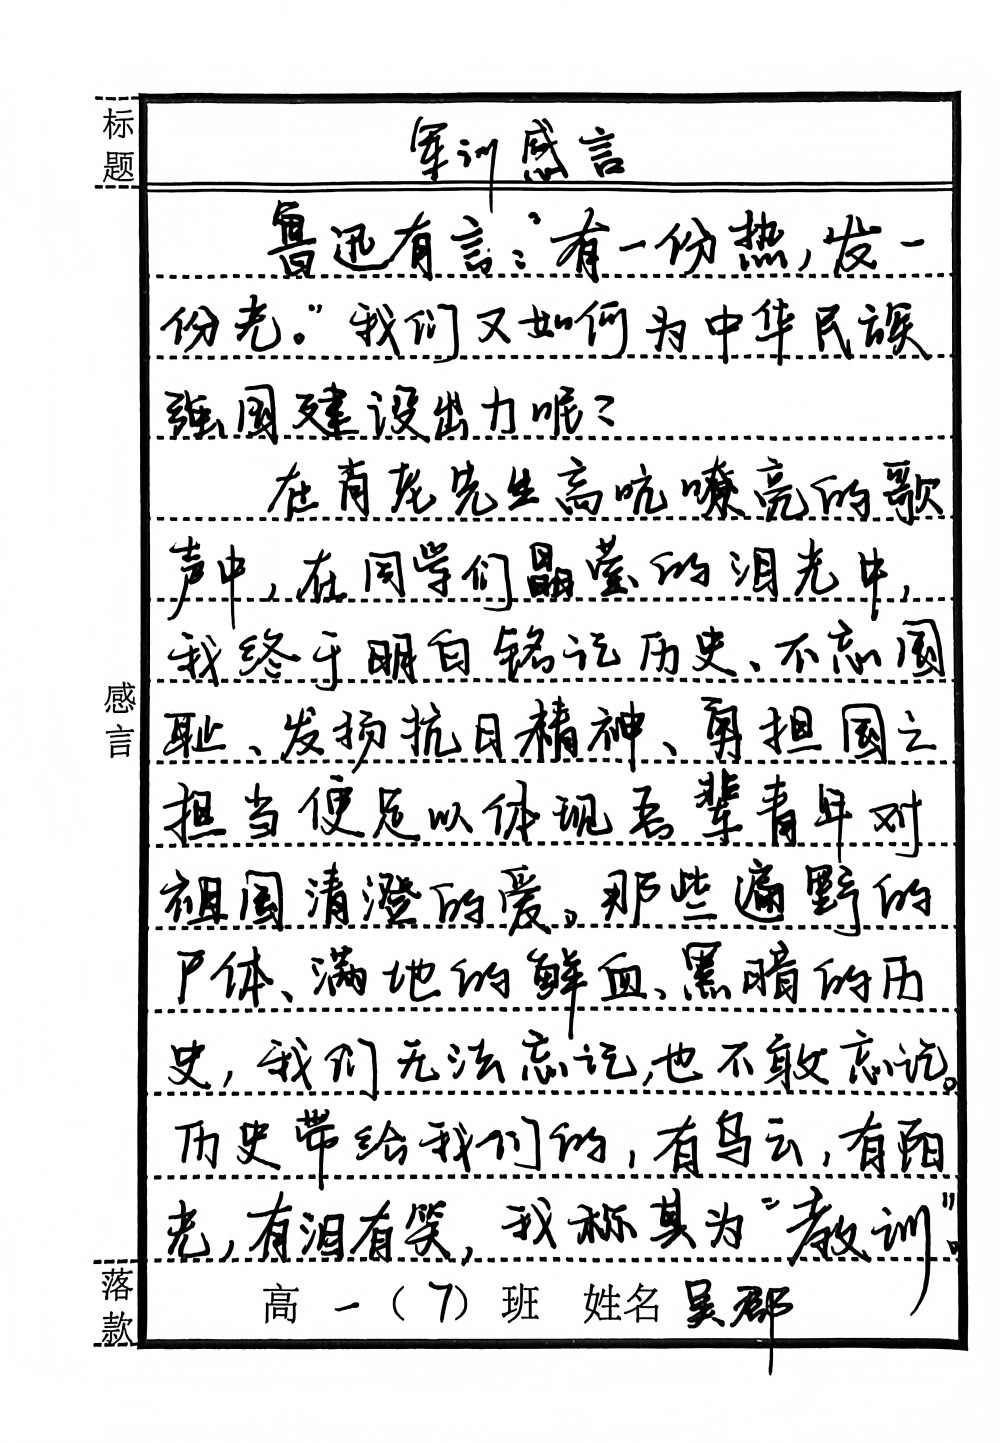 标题
军训感言
鲁迅有言："有一份热，发一
份光。"我们又如何为中华民族
强国建设出力呢？
在肖老先生高吭嘹亮的歌
声中，在同学们晶莹的泪光中，
我终于明白铭记历史、不忘国
耻、发扬抗日精神、勇担国之
担当便足以体现吾辈青年对
祖国清澄的爱。那些遍野的
尸体、满地的鲜血、黑暗的历
史，我们无法忘记，也不敢忘记。
历史带给我们的，有乌云，有阳
光，有泪有笑，我称其为"教训"。
感言
落款
高一（7）班 姓名 吴郡